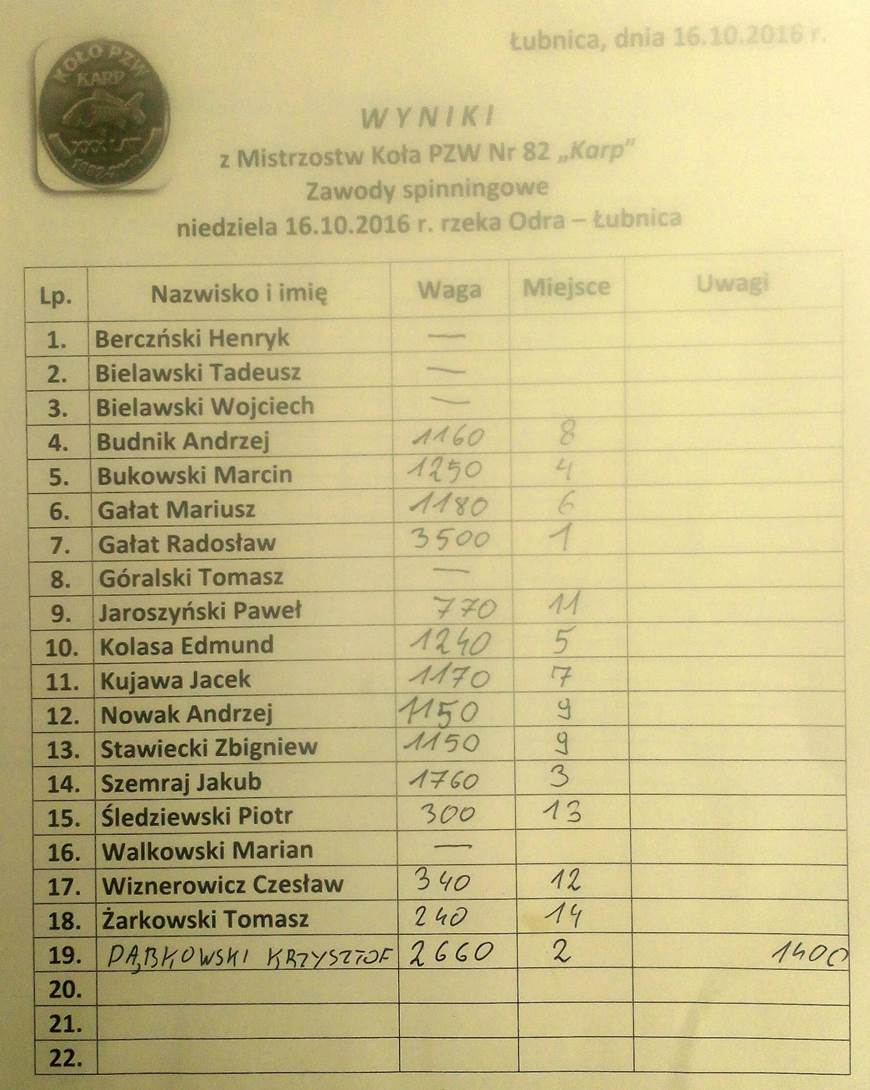 Łubnica, dnia 16.10.2016 r.
KOŁO PZW
KARP
XXX LAT
WYNIKI
z Mistrzostw Koła PZW Nr 82 „Karp”
Zawody spinningowe
niedziela 16.10.2016 r. rzeka Odra – Łubnica
Lp. Nazwisko i imię Waga Miejsce Uwagi
1. Berczński Henryk —
2. Bielawski Tadeusz —
3. Bielawski Wojciech —
4. Budnik Andrzej 1160 8
5. Bukowski Marcin 1250 4
6. Gałat Mariusz 1180 6
7. Gałat Radosław 3500 1
8. Góralski Tomasz —
9. Jaroszyński Paweł 770 11
10. Kolasa Edmund 1240 5
11. Kujawa Jacek 1170 7
12. Nowak Andrzej 1150 9
13. Stawiecki Zbigniew 1150 9
14. Szemraj Jakub 1760 3
15. Śledziewski Piotr 300 13
16. Walkowski Marian —
17. Wiznerowicz Czesław 340 12
18. Żarkowski Tomasz 240 14
19. DĄBKOWSKI KRZYSZTOF 2660 2 1400
20.
21.
22.